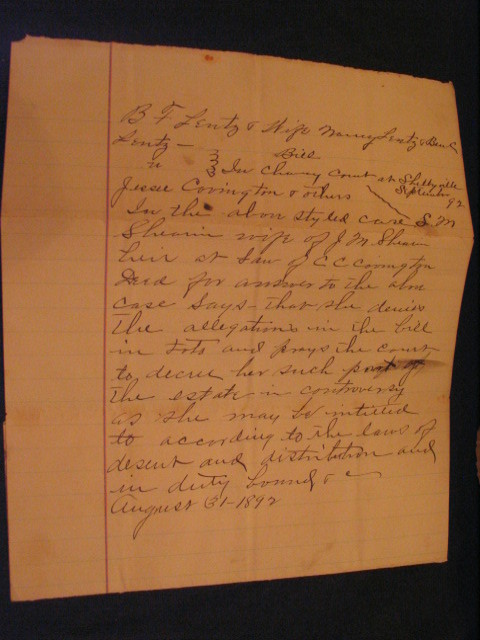 B F Lentz & Wife Nancy Lentz & Ben C
Lentz —
Bill
vs In Chancy Court at Shelbyville
September
92
Jessee Covington & others
In the abov styled case S. M
Shearin wife of J. M. Shearin
heir at law of C C Covington
Decd for answer to the abov
case says - that she denies
the allegations in the bill
in toto and prays the court
to decree her such part of
the estate in controversy
as she may be intitled
to according to the laws of
desent and distribution and
in duty bound &c
August 31 - 1892